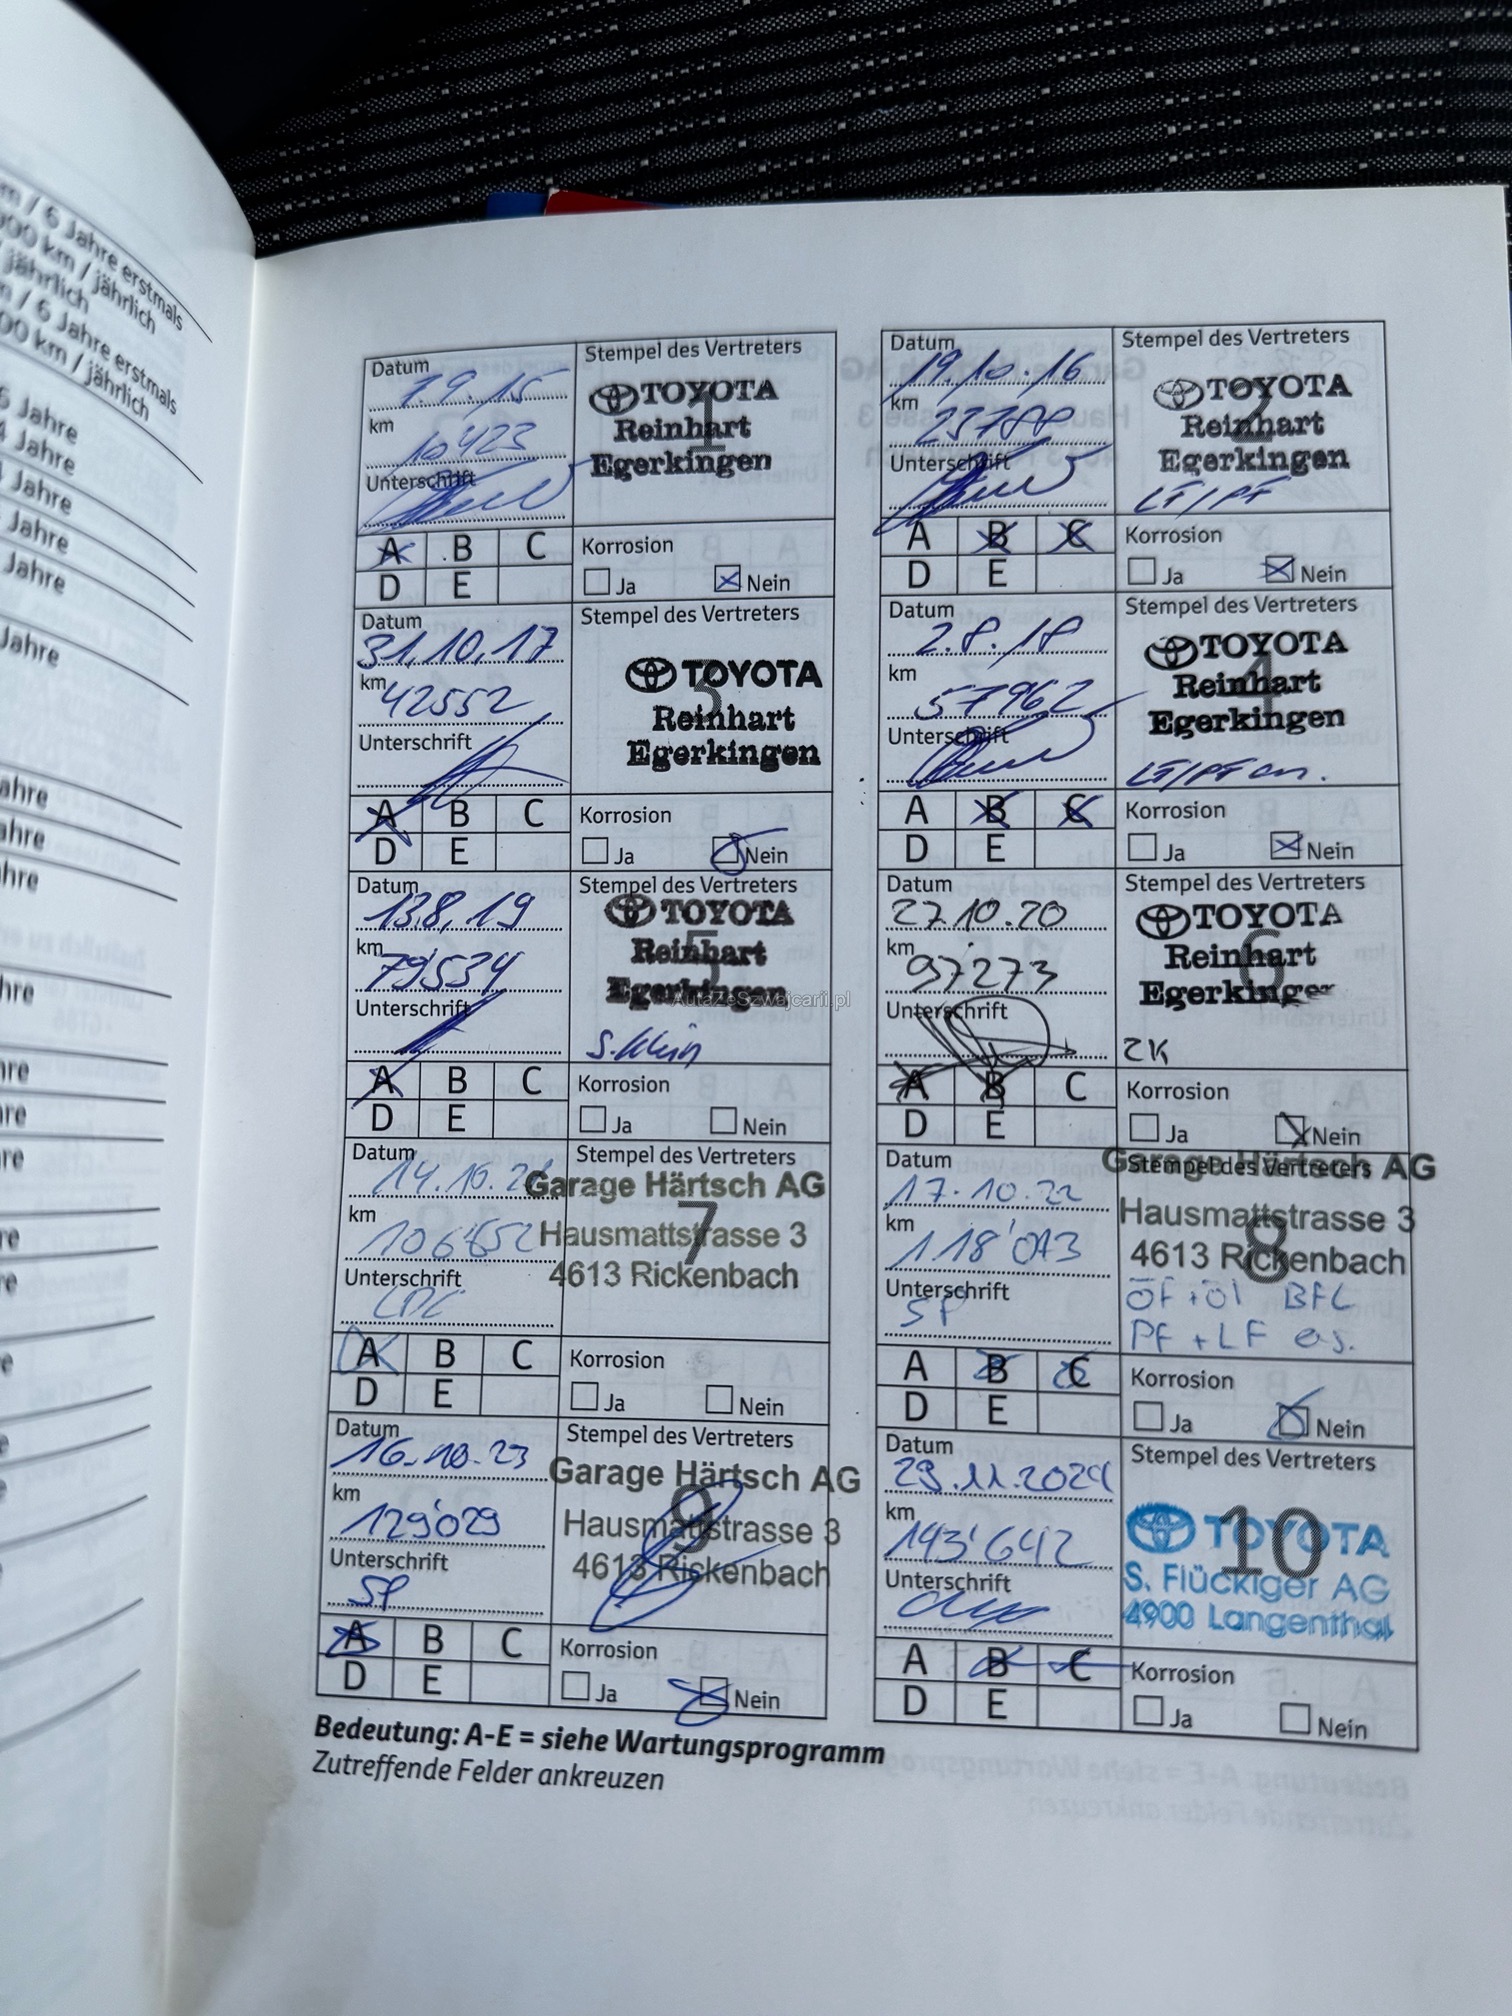 m / 6 Jahre erstmals
000 km / jährlich
/ jährlich
m / 6 Jahre erstmals
00 km / jährlich
6 Jahre
4 Jahre
Jahre
Jahre
Jahre
Jahre
ahre
ahre
hre
hre
Datum
7.9.15
km
10423
Unterschrift
Stempel des Vertreters
1
TOYOTA
Reinhart
Egerkingen
A B C
D E
Korrosion
Ja Nein
Datum
19.10.16
km
Unterschrift
Stempel des Vertreters
2
TOYOTA
Reinhart
Egerkingen
LF/PF
A B C
D E
Korrosion
Ja Nein
Datum
31.10.17
km
42552
Unterschrift
Stempel des Vertreters
3
TOYOTA
Reinhart
Egerkingen
A B C
D E
Korrosion
Ja Nein
Datum
2.8.18
km
57962
Unterschrift
Stempel des Vertreters
4
TOYOTA
Reinhart
Egerkingen
LF/PF
A B C
D E
Korrosion
Ja Nein
Datum
13.8.19
km
79534
Unterschrift
Stempel des Vertreters
5
TOYOTA
Reinhart
Egerkingen
AutaZeSzwajcarii.pl
S. Klein
A B C
D E
Korrosion
Ja Nein
Datum
27.10.20
km
97273
Unterschrift
Stempel des Vertreters
6
TOYOTA
Reinhart
Egerkinger
ZK
A B C
D E
Korrosion
Ja Nein
Datum
km
Unterschrift
Stempel des Vertreters
7
Garage Härtsch AG
Hausmattstrasse 3
4613 Rickenbach
A B C
D E
Korrosion
Ja Nein
Datum
17.10.22
km
118'073
Unterschrift
SP
Stempel des Vertreters
8
Garage Härtsch AG
Hausmattstrasse 3
4613 Rickenbach
ÖF + Öl BFL
PF + LF es.
A B C
D E
Korrosion
Ja Nein
Datum
16.10.23
km
129'029
Unterschrift
SP
Stempel des Vertreters
9
Garage Härtsch AG
Hausmattstrasse 3
4613 Rickenbach
A B C
D E
Korrosion
Ja Nein
Datum
29.11.2024
km
143'642
Unterschrift
Stempel des Vertreters
10
TOYOTA
S. Flückiger AG
4900 Langenthal
A B C
D E
Korrosion
Ja Nein
Bedeutung: A-E = siehe Wartungsprogramm
Zutreffende Felder ankreuzen